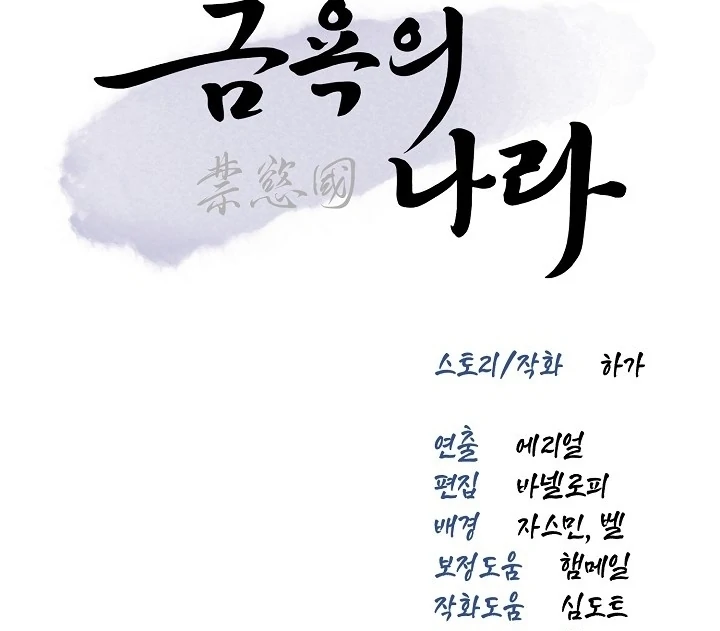 금욕의
나라
禁慾國
스토리/작화 하가
연출 에리얼
편집 바넬로피
배경 자스민, 벨
보정도움 햄메일
작화도움 심도트